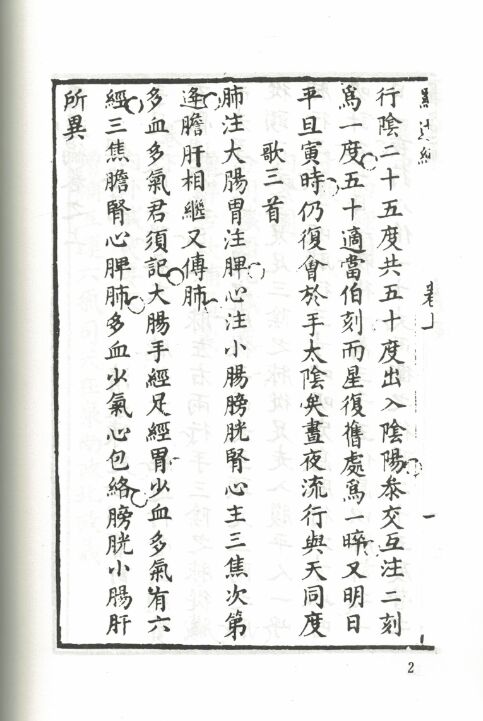 卷上
一
行陰二十五度共五十度出入陰陽叅交互注二刻
爲一度五十適當伯刻而星復舊處爲一晬又明日
平旦寅時仍復會於手太陰矣晝夜流行與天同度
歌三首
肺注大腸胃注脾心注小腸膀胱腎心主三焦次第
逢膽肝相繼又傳肺
多血多氣君須記大腸手經足經胃少血多氣有六
經三焦膽腎心脾肺多血少氣心包絡膀胱小腸肝
所異
2